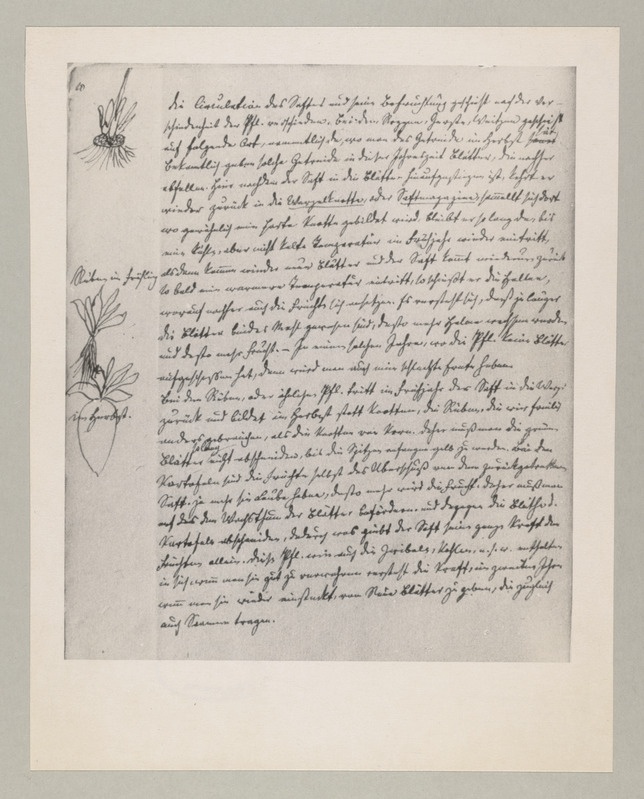 Die Circulation des Saftes und seine Befruchtung geschieht nach der Ver-
schiedenheit der Pfl. verschieden. Bei dem Roggen, Gerste, Weitzen geschieht
auf folgende Art, nemmtlich da, wo man das Getreide im Herbst
Bekanntlich geben solche Getreide in dieser Jahreszeit Blätter, die nachher
abfallen. Hier nachdem der Saft in die Blätter hinaufgestiegen ist, kehrt er
wieder zurück in die Wurzelknotte, oder Saftmagazine, sammelt sich dort
wo gewöhnlich eine harte Knotte gebildet wird. bleibt er so lang da, bis
eine kühle, aber nicht kalte Temperatur im Frühjahr wieder eintritt,
alsdann kommen wieder neue Blätter und der Saft kommt wiederum zurück
So bald eine warmere Temperatur eintritt, so schießt er die Halme,
worauf nachher auch die Früchte sich ansetzen. Es versteht sich, daß je länger
Rüben im Frühling
die Blätter beides Mahl gewesen sind, desto mehr Halme wachsen werden
und desto mehr Frucht. – In einem solchen Jahre, wo die Pfl. keine Blätter
aufgeschossen hat, dann wird man auch eine schlechte Ernte haben.
Bei den Rüben, oder ähnlichen Pfl. tritt im Frühjahr der Saft in die
zurück und bildet im Herbst statt Knotten, die Rüben, die wir freilich
im Herbst.
anders gebrauchen, als die Knotten von Korn. Daher muß man die grün.
Blätter so lang nicht abschneiden, bis die Spitzen anfangen gelb zu werden. Bei den
Kartofeln sind die Früchte selbst der Überschuß von dem zurückgetretenen
Saft. je mehr sie Laube haben, desto mehr wird die Frucht. daher muß man
auch das dem Wachsthum der Blätter befördern und dagegen die Blüthe d.
Kartofeln abschneiden, dadurch giebt der Saft seine ganze Kraft den
Früchten allein. Diese Pfl. wie auch die Zwibeln, Kohlen, u. s. w. enthalten
in sich wenn man sie gut zu verwahren versteht die Kraft, im zweiten Jahre
wenn man sie wieder einsteckt, von Neue Blätter zu geben, die zugleich
auch Saamen tragen.